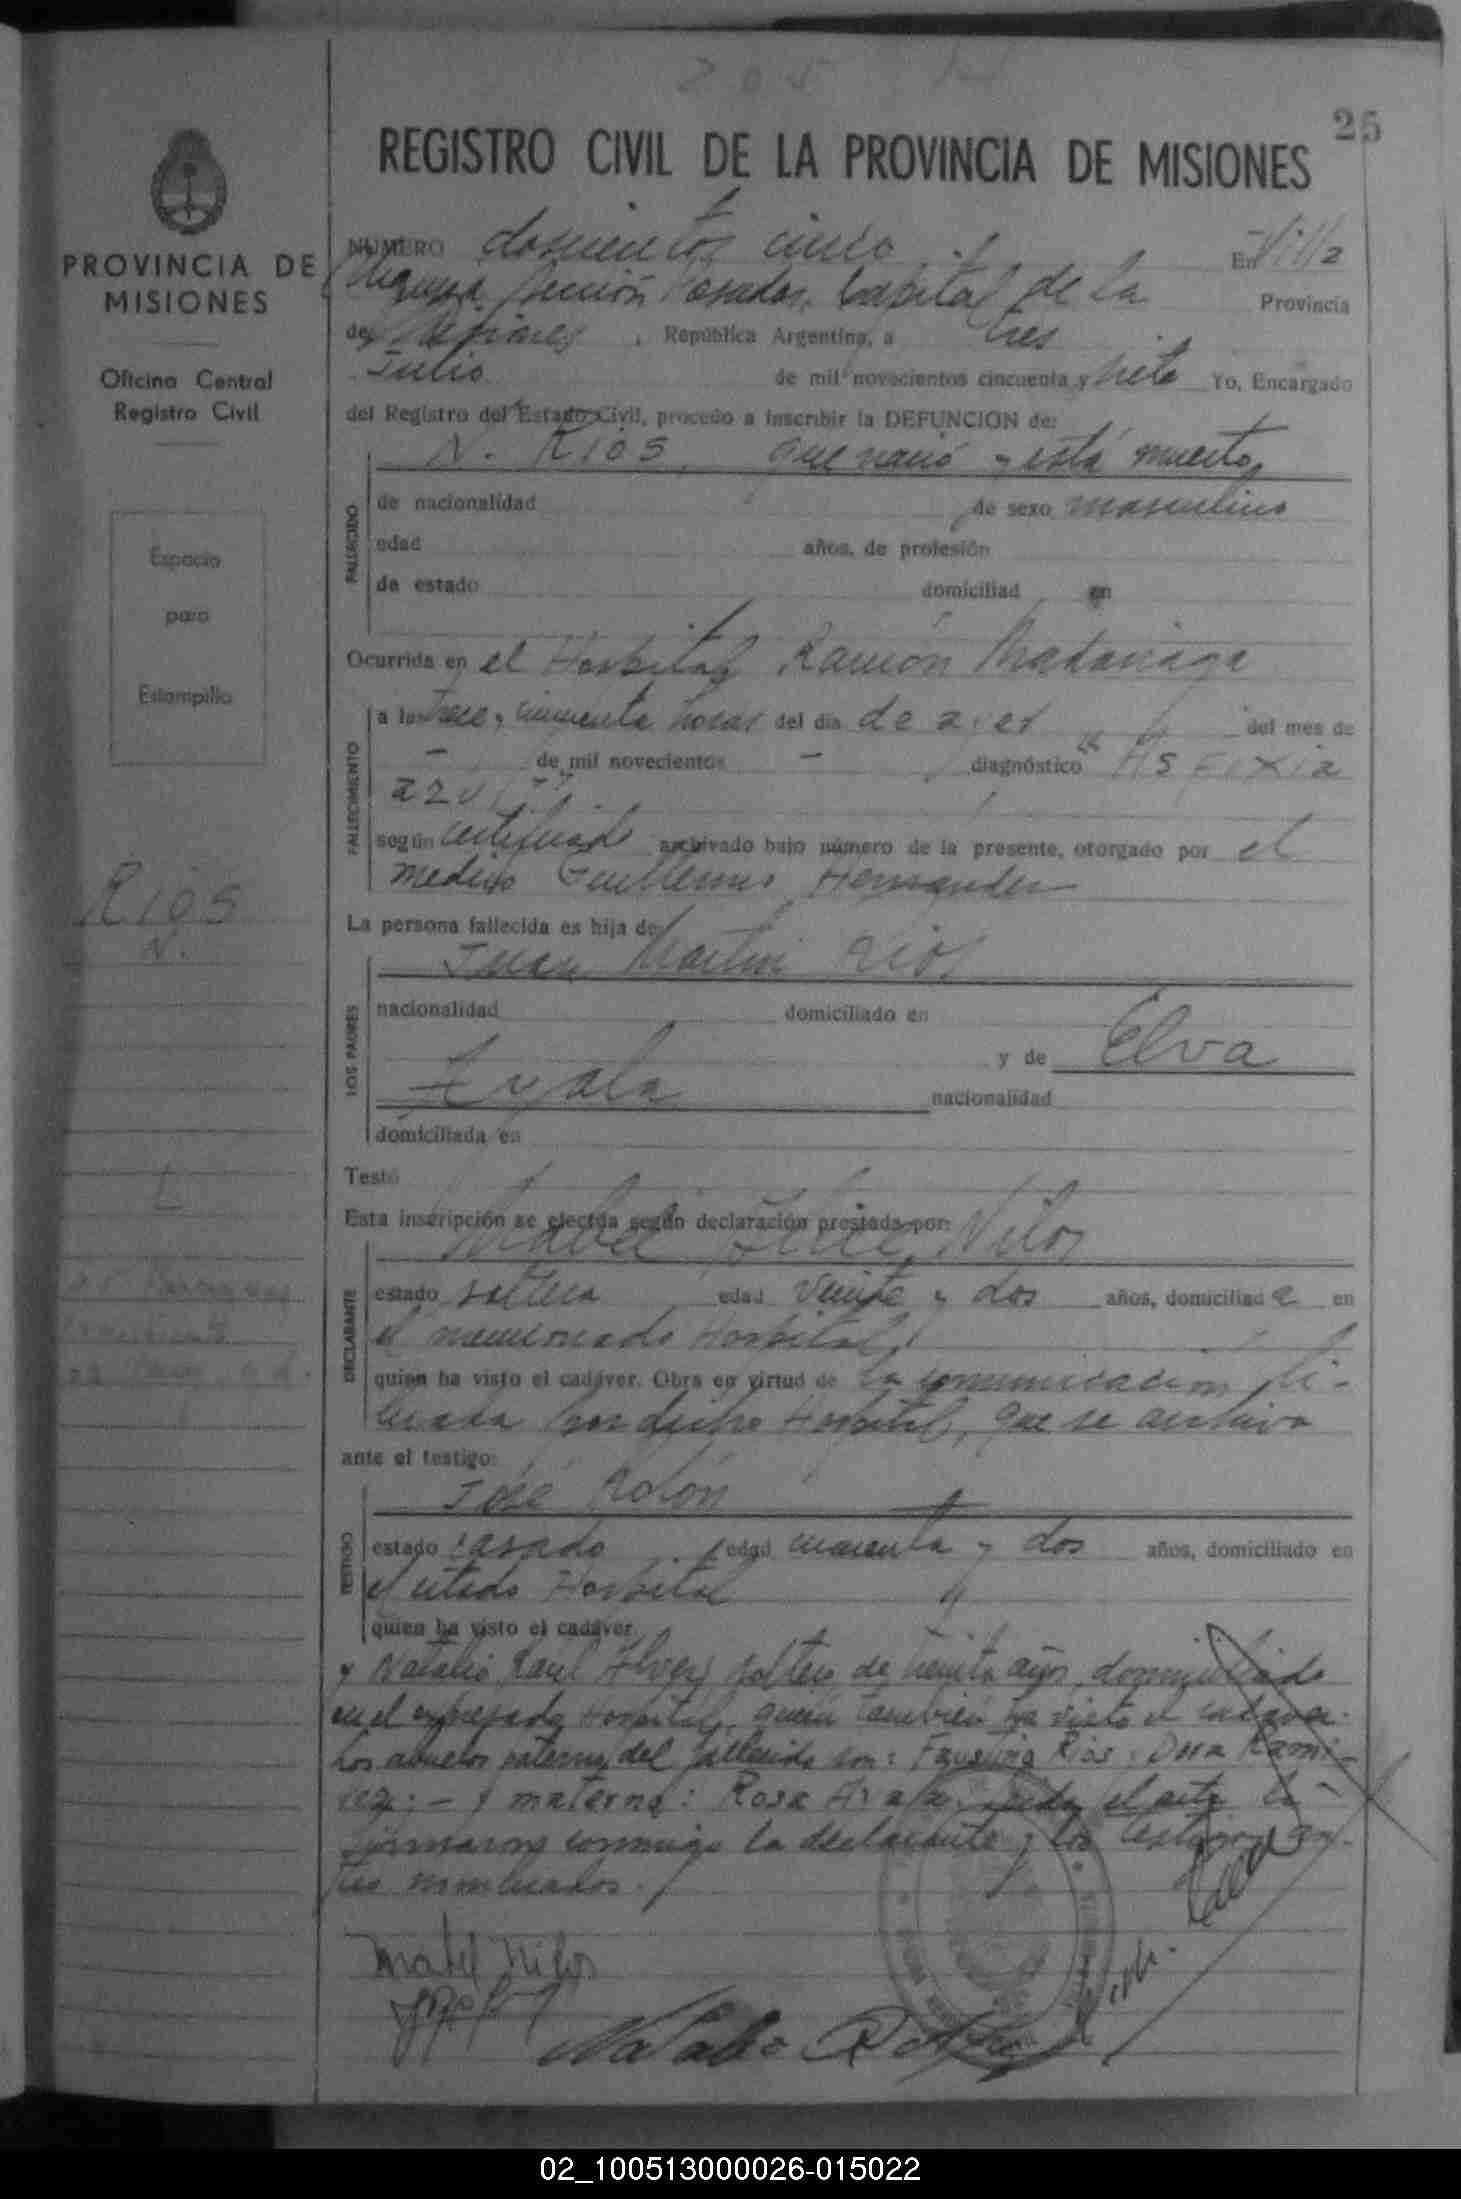 205
25
REGISTRO CIVIL DE LA PROVINCIA DE MISIONES
PROVINCIA DE
MISIONES
Oficina Central
Registro Civil
Espacio
para
Estampilla
Rios
N.
NUMERO doscientos cinco En Villa
Urquiza Sección Posadas, Capital de la Provincia
de Misiones, República Argentina, a tres
Julio de mil novecientos cincuenta y siete Yo, Encargado
del Registro del Estado Civil, procedo a inscribir la DEFUNCION de:
N. Rios, que nació y está muerto,
FALLECIDO
de nacionalidad de sexo masculino
edad años, de profesión
de estado domiciliad en
Ocurrida en el Hospital Ramón Madariaga
FALLECIMIENTO
a las trece y cincuenta horas del día de ayer del mes de
- de mil novecientos - diagnóstico Asfixia
azul
según certificado archivado bajo número de la presente, otorgado por el
medico Guillermo Hernandez
La persona fallecida es hija de
Juan Martin Rios
LOS PADRES
nacionalidad domiciliado en
y de Elva
Ayala nacionalidad
domiciliada en
Testó
Esta inscripción se efectúa según declaración prestada por:
Mabel Nilos
DECLARANTE
estado soltera edad veinte y dos años, domiciliad a en
el mencionado Hospital,
quien ha visto el cadáver. Obra en virtud de la comunicación li-
brada por dicho Hospital, que se archiva
ante el testigo:
José Rolón
TESTIGO
estado casado edad cuarenta y dos años, domiciliado en
el citado Hospital
quien ha visto el cadáver.
y Natalio Raul Alvez, soltero de treinta años, domiciliado
en el expresado Hospital, quien también ha visto el cadaver.
Los abuelos paternos del fallecido son: Faustino Rios y Dora Rami-
rez; - y materna: Rosa Ayala. Leida el acta la
firmaron conmigo la declarante y los testigos an-
tes nombrados.
Mabel Nilos
02_100513000026-015022